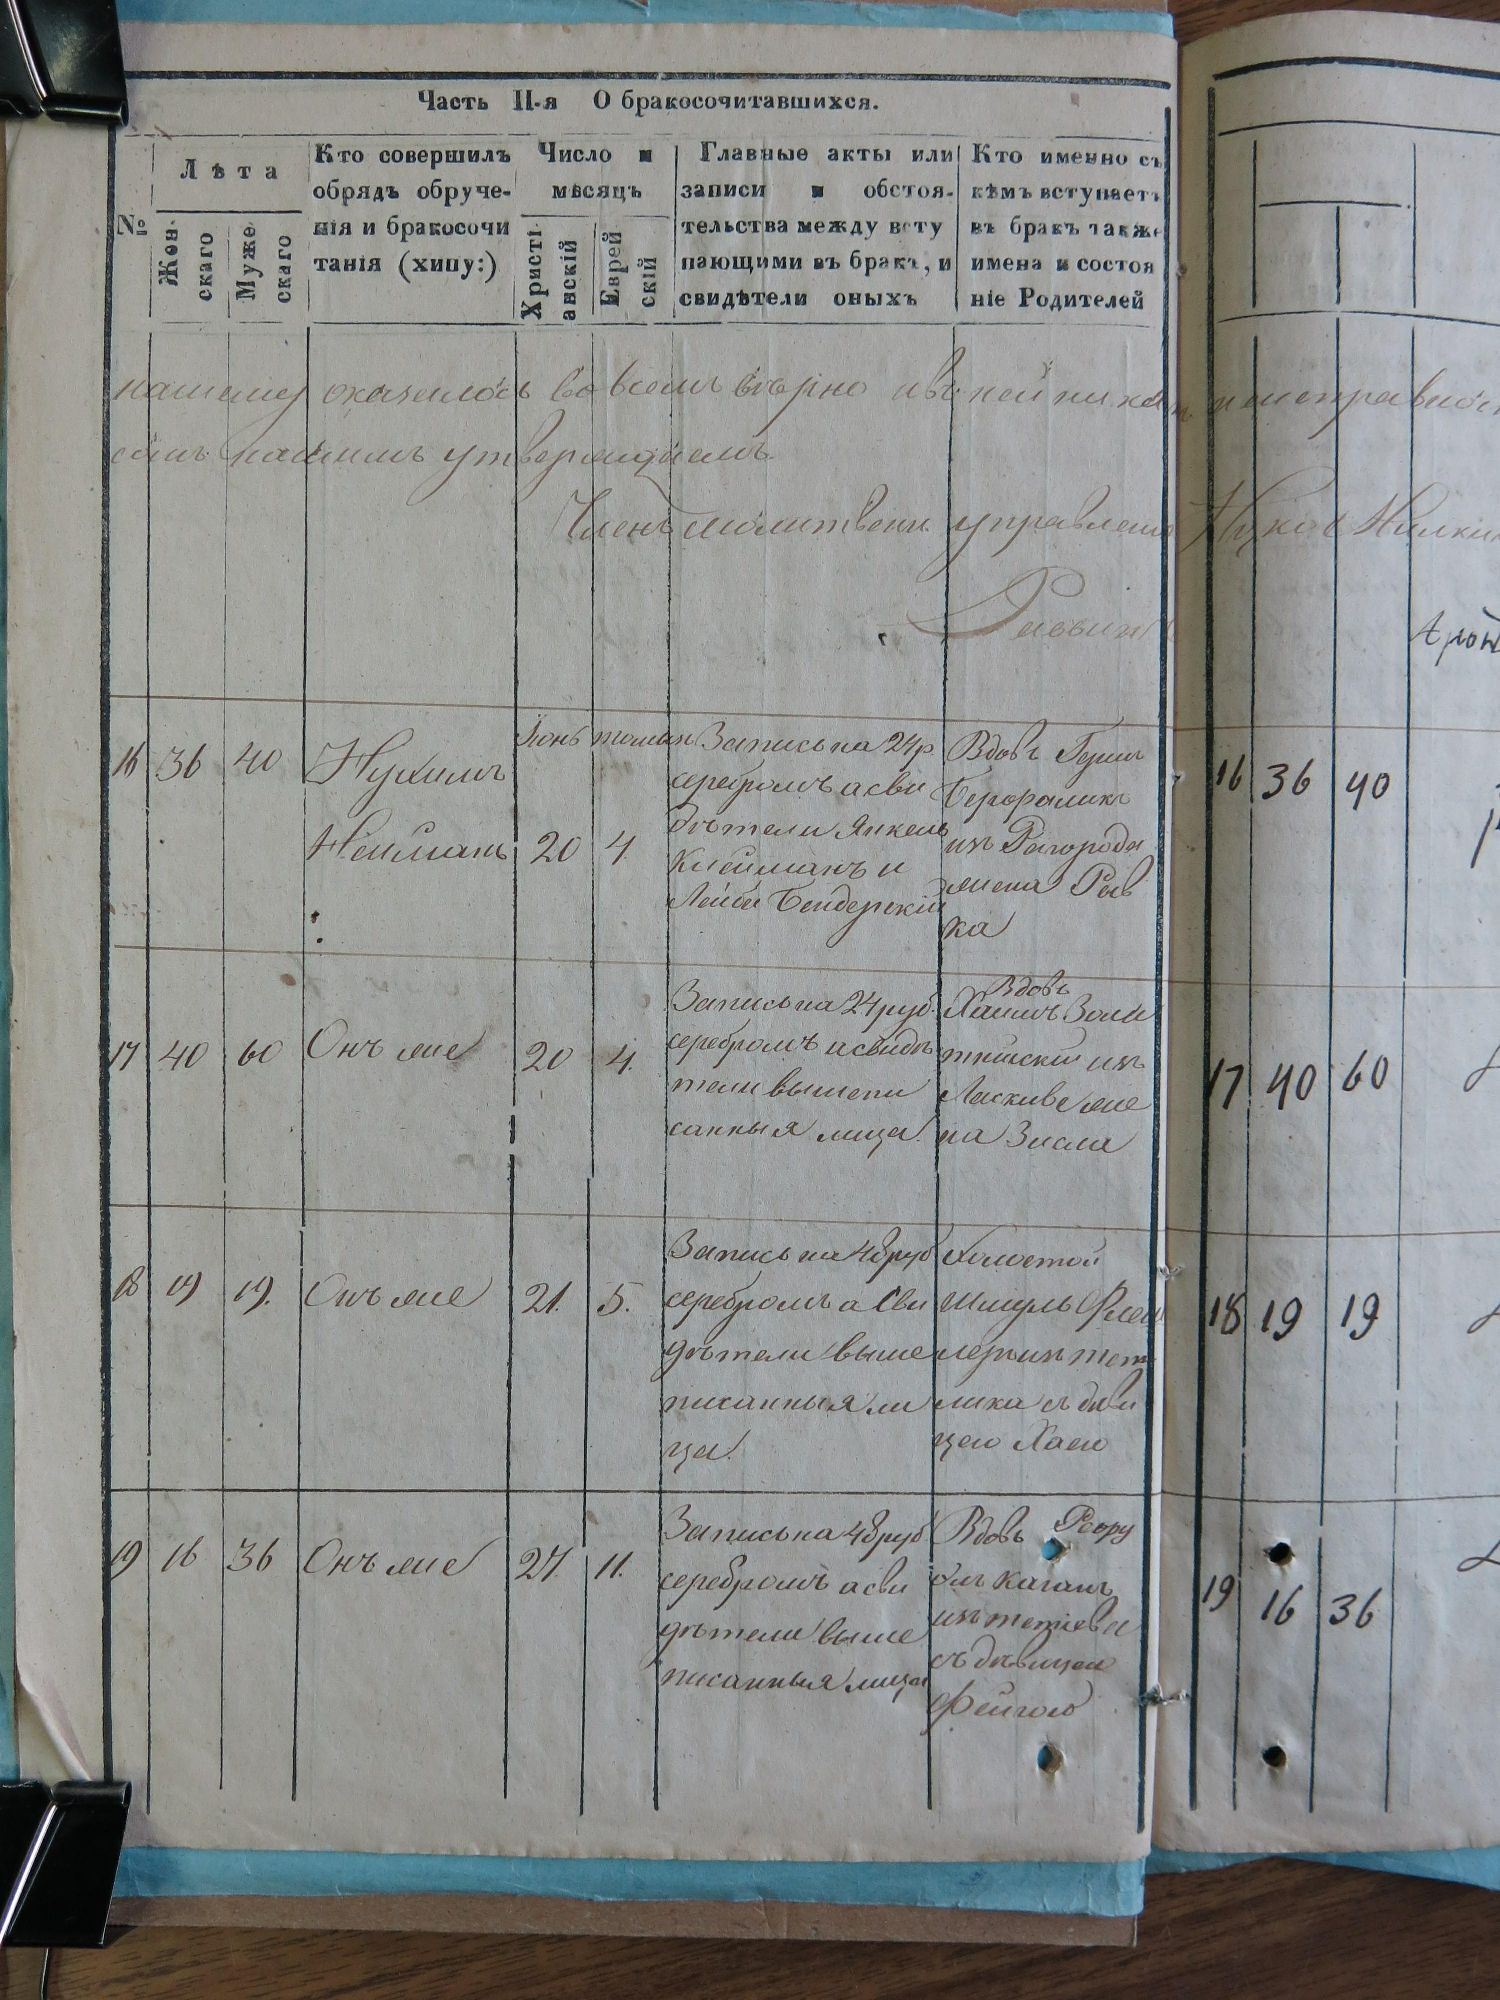 Часть II-я О бракосочитавшихся.
№
Лѣта
Жен-
скаго
Муже
скаго
Кто совершилъ
обрядъ обруче-
нія и бракосочи
танія (хипу:)
Число и
мѣсяцъ
Христі
анскій
Еврей
скій
Главные акты или
записи и обстоя-
тельства между всту
пающими въ бракъ, и
свидѣтели оныхъ
Кто именно съ
кѣмъ вступаетъ
въ бракъ также
имена и состоя
ніе Родителей
нашему оказалось во всемъ вѣрно и въ ней никак
симъ нашимъ утверждаемъ
Членъ молитвен. управления
Раввинъ
16 36 40
Нухимъ
Нейманъ
Іюнь
20 4.
Запись на 24 р.
серебромъ а сви
дѣтели Янкель
Клейманъ и
Лейба Бендерскій
Вдовъ Герш
изъ Рагорода
жена Рыв
ка
17 40 60 Онъ же 20 4.
Запись на 24 руб.
серебромъ и свидѣ
тели вышепи
санныя лица.
Вдовъ
Хаимъ
на Зисля
18 19 19. Онъ же 21. 5.
Запись на 48 руб
серебромъ а сви
дѣтели выше
писанныя ли
ца.
Холостой
Шмуль
лика съ дѣви
цею Хаею
19 16 36 Онъ же 27. 11.
Запись на 48 руб
серебромъ а сви
дѣтели выше
писанныя лица
Вдовъ
Каганъ
изъ Тетіева
съ дѣвицею
Фейгою
16 36 40
17 40 60
18 19 19
19 16 36